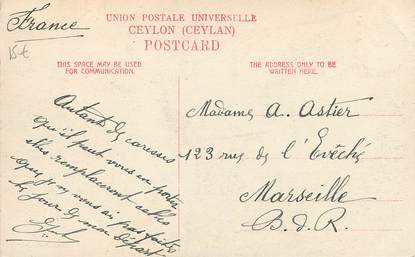 France
15€
UNION POSTALE UNIVERSELLE
CEYLON (CEYLAN)
POSTCARD
THIS SPACE MAY BE USED
FOR COMMUNICATION.
THE ADDRESS ONLY TO BE
WRITTEN HERE.
Autant de caresses
qu'il peut vous en porter
elles remplaceront celles
que je n'y vous ai pas faites
le jour de mon départ
Madame A. Astier
123 rue de l'Evêché
Marseille
B.D.R.